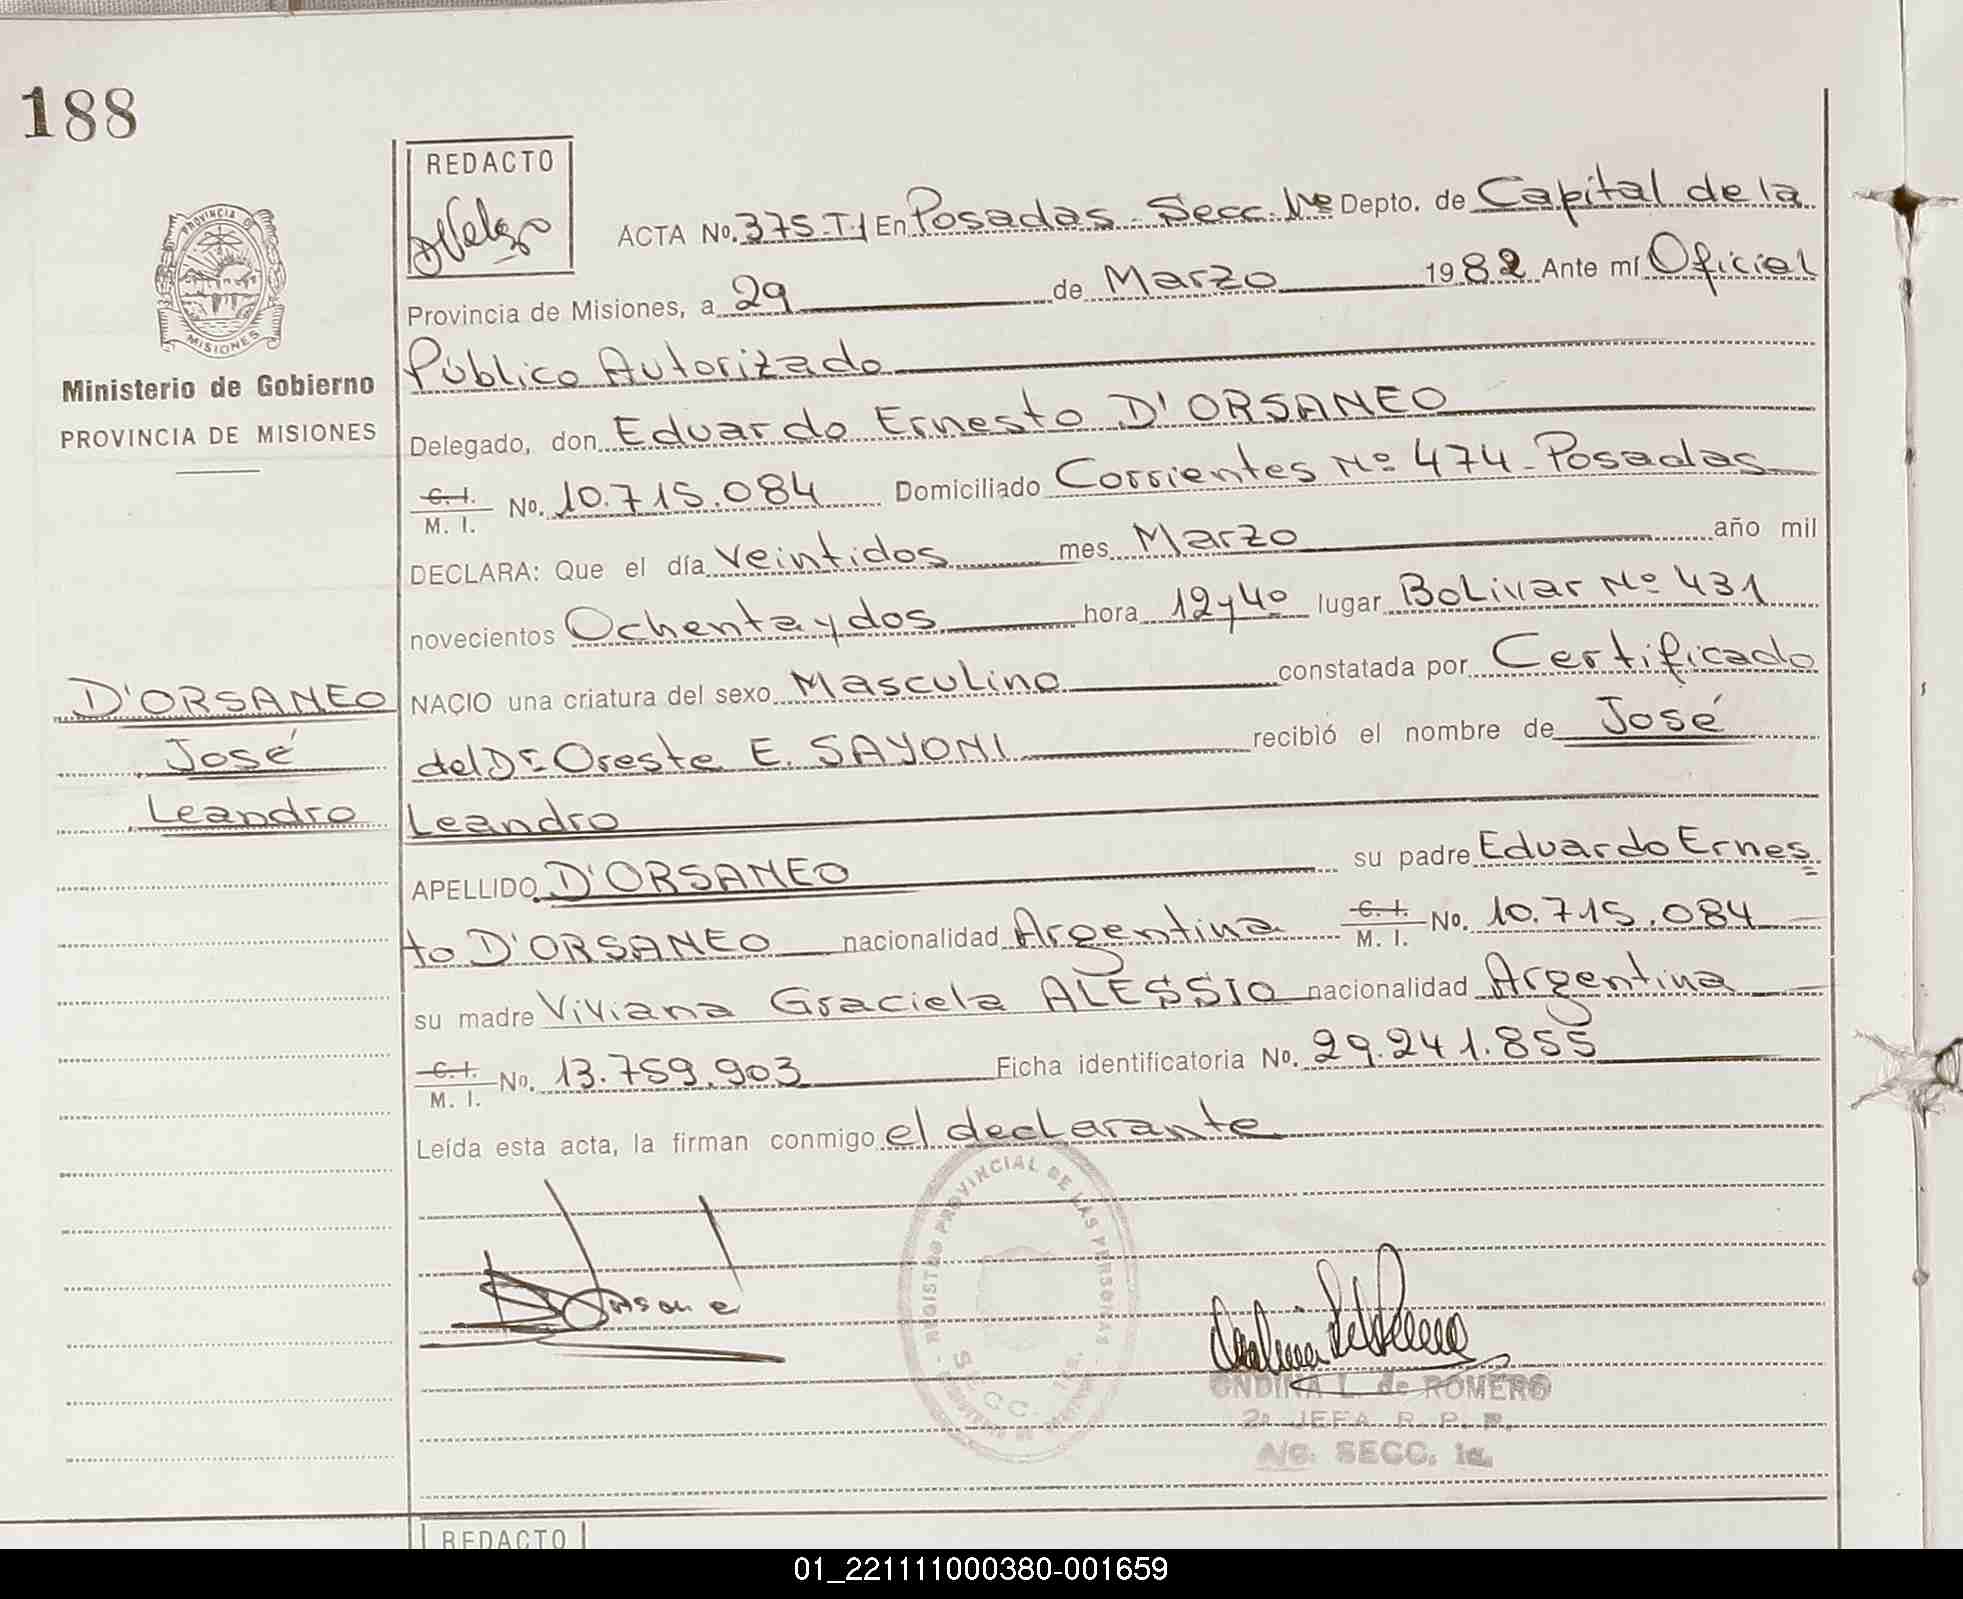 188
REDACTO
PROVINCIA DE
MISIONES
Ministerio de Gobierno
PROVINCIA DE MISIONES
ACTA No. 375-T.I En Posadas - Secc. 1ra Depto. de Capital de la
Provincia de Misiones, a 29 de Marzo 1982 Ante mí Oficial
Público Autorizado
Delegado, don Eduardo Ernesto D'ORSANEO
C. I. M. I. No. 10.715.084 Domiciliado Corrientes Nº 474 - Posadas
DECLARA: Que el día veintidos mes Marzo año mil
novecientos Ochenta y dos hora 12 y 40 lugar Bolivar Nº 431
NACIO una criatura del sexo Masculino constatada por Certificado
del Dr. Oreste E. SAYONI recibió el nombre de José
Leandro
APELLIDO D'ORSANEO su padre Eduardo Ernes=
to D'ORSANEO nacionalidad Argentina C. I. M. I. No. 10.715.084
su madre Viviana Graciela ALESSIO nacionalidad Argentina
C. I. M. I. No. 13.759.903 Ficha identificatoria No. 29.241.855
Leída esta acta, la firman conmigo el declarante
D'ORSANEO
José
Leandro
REGISTRO PROVINCIAL DE LAS PERSONAS
SECC. 1ra.
ONDINA L. de ROMERO
2a JEFA R. P. P.
A/C. SECC. 1a.
REDACTO
01_221111000380-001659